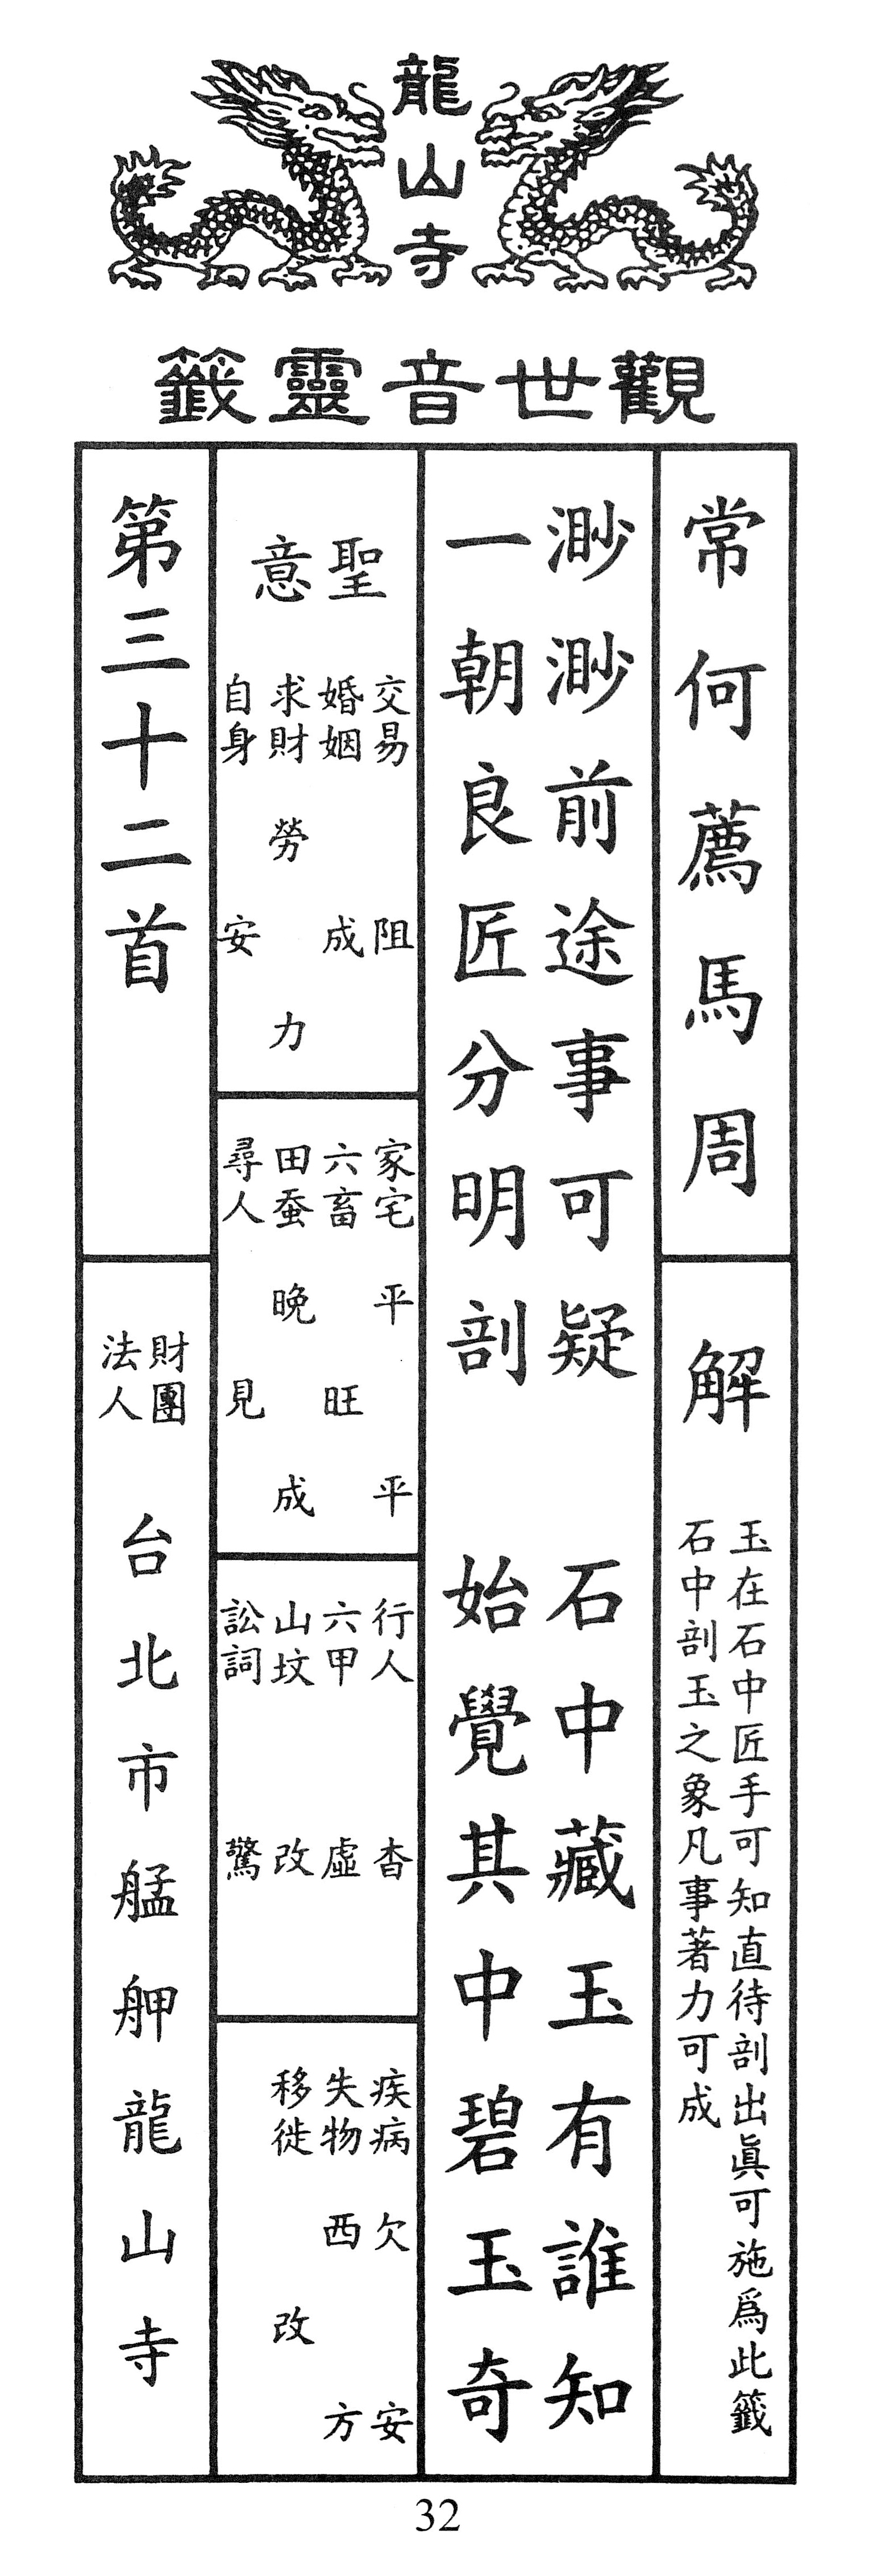 龍山寺
觀世音靈籤
常何薦馬周
解
玉在石中匠手可知直待剖出眞可施爲此籤
石中剖玉之象凡事著力可成
渺渺前途事可疑 石中藏玉有誰知
一朝良匠分明剖 始覺其中碧玉奇
聖意
交易 阻
婚姻 成
求財 勞力
自身 安
家宅 平平
六畜 旺
田蚕 晚成
尋人 見
行人 杳
六甲 虛
山坟 改
訟詞 驚
疾病 欠安
失物 西方
移徙 改
第三十二首
財團法人
台北市艋舺龍山寺
32